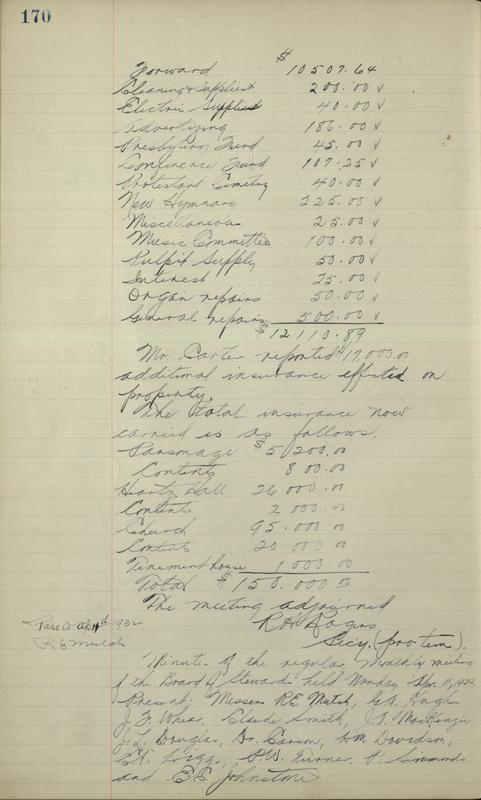 170
$
Forward 10507.64
Cleaning & Supplies 200.00 √
Electric Supplies 40.00 √
Advertizing 186.00 √
Presbytery Fund 45.00 √
Conference Fund 107.25 √
Protestant Cemetry 40.00 √
New Hymnary 225.00 √
Miscellaneous 25.00 √
Music Committee 100.00 √
Pulpit Supply 50.00 √
Interest 25.00 √
Organ repairs 50.00 √
General repairs 500.00 √
$12110.89
Mr. Carter reported $17,000.00
additional insurance effected on
property.
The total insurance now
carried is as follows.
Parsonage $5200.00
Contents 800.00
Heartz Hall 26000.00
Contents 2000.00
Church 95.000.00
Contents 20000.00
Tenement house 1000.00
Total $150.000.00
The meeting adjourned
R H Rogers
Secy. (pro tem).
Passed Ap 11th 1932
R E Mutch
Minutes of the regular monthly meeting
of the Board of Stewards held Monday Apr. 11, 1932
Present: Messrs R.E. Mutch, G.A.
J. F. Whear, Claude Smith, MacKenzie
J. L. Douglas, Dr. Carson, Hm. Davidson,
Higgs, Turner, Simmonds
and E.E. Johnstone